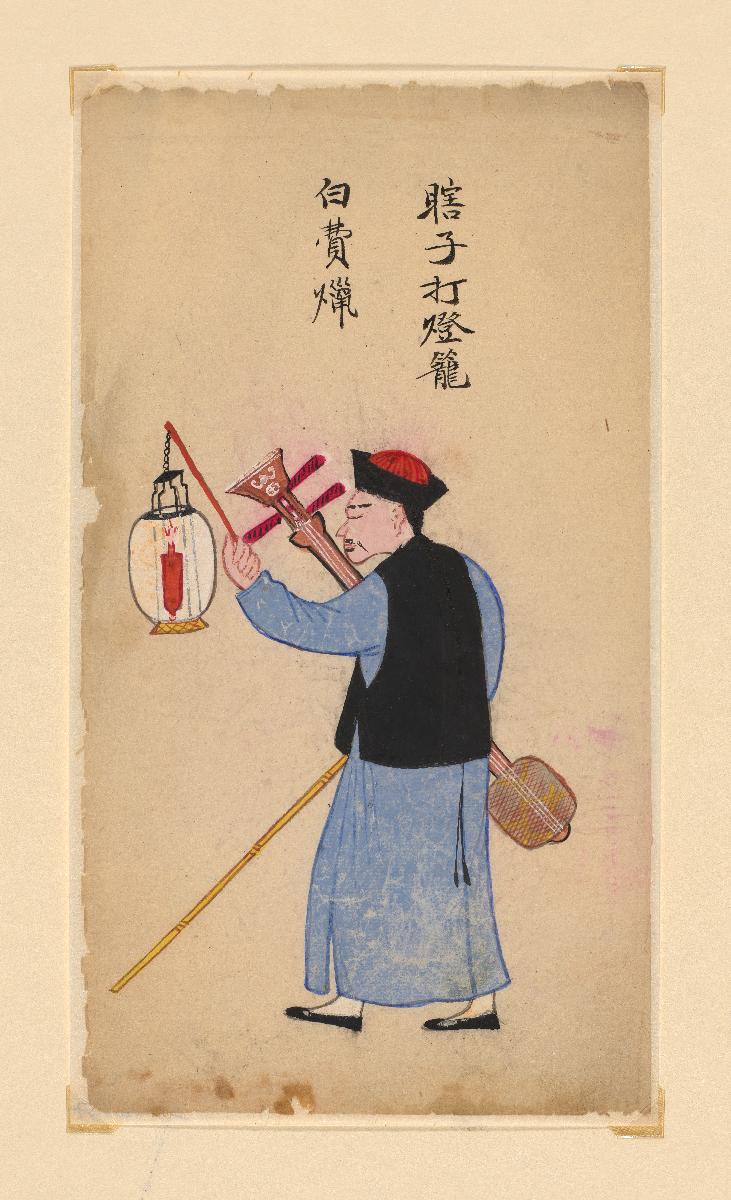 瞎子打燈籠
白費爉